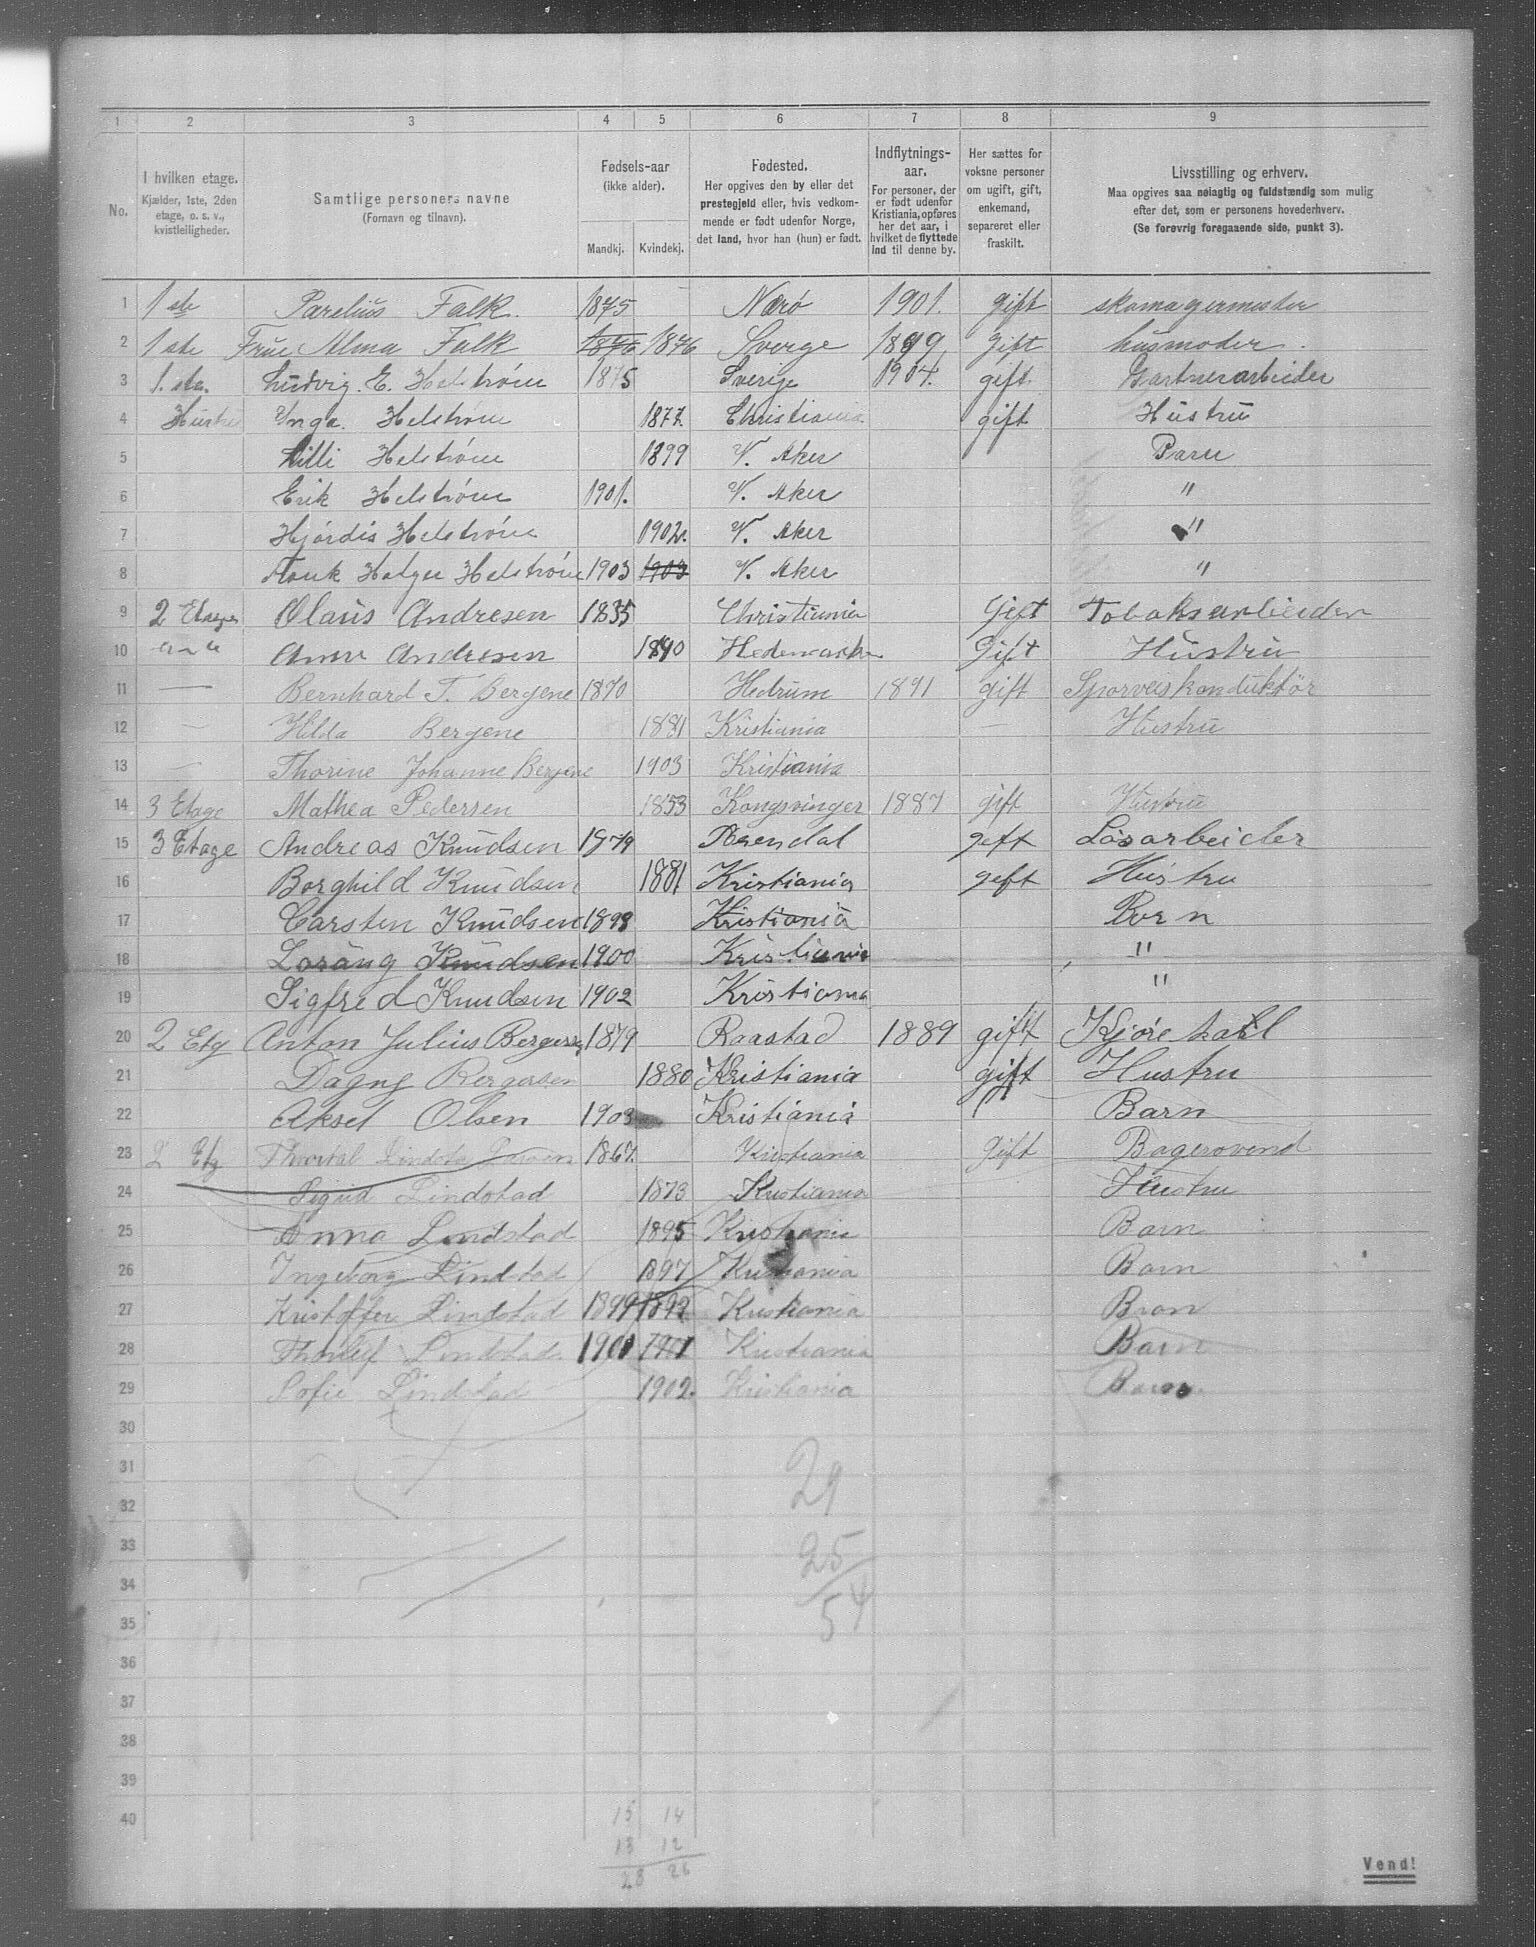 1 2 3 4 5 6 7 8 9
No.
I hvilken etage.
Kjælder, 1ste, 2den
etage, o. s. v.,
kvistleiligheder.
Samtlige personers navne
(Fornavn og tilnavn).
Fødsels-aar
(ikke alder).
Mandkj. Kvindekj.
Fødested.
Her opgives den by eller det
prestegjeld eller, hvis vedkom-
mende er født udenfor Norge,
det land, hvor han (hun) er født.
Indflytnings-
aar.
For personer, der
er født udenfor
Kristiania, opføres
her det aar, i
hvilket de flyttede
ind til denne by.
Her sættes for
voksne personer
om ugift, gift,
enkemand,
separeret eller
fraskilt.
Livsstilling og erhverv.
Maa opgives saa nøiagtig og fuldstændig som mulig
efter det, som er personens hovederhverv.
(Se forøvrig foregaaende side, punkt 3).
1 1ste Parelius Falk. 1875 Nærø 1901. gift skomagermester
2 1ste Frue Alma Falk 1876 1876 Sverge 1899 gift husmoder.
3 1.ste. Ludvig. E. Helstrøm 1875 Sverige 1904. gift Gartnerarbeider
4 Hustru Ynga. Helstrøm 1877. Christiania gift Hustru
5 Lilli Helstrøm 1899 V. Aker Barn
6 Erik Helstrøm 1901. V. Aker "
7 Hjórdis Helstrøm 1902. V. Aker "
8 Frank Holger Helstrøm 1903 1903 V. Aker "
9 2 Etage Olaüs Andresen 1835 Christiania Gift Tobaksarbeider
10 " Anne Andresen 1840 Hedemarken Gift Hüstru
11 — Bernhard T. Bergene 1870 Hedrum 1891 gift Sporveiskonduktør
12 — Hilda Bergene 1881 Kristiania — Hustru
13 — Thorine Johanne Bergene 1903 Kristiania
14 3 Etage Mathea Pedersen 1853 Kongsvinger 1887 gift Hustru
15 3 Etage Andreas Knudsen 1879 Arendal geft Løsarbeider
16 Borghild Knudsen 1881 Kristiania geft Hustru
17 Carsten Knudsen 1898 Kristiania Born
18 Lorang Knudsen 1900 Kristiania "
19 Sigfred Knudsen 1902 Kristiania "
20 2 Etg Anton Julius Bergersen 1879 Raastad 1889 gift Kjørekal
21 Dagny Bergersen 1880 Kristiania gift Hustru
22 Aksel Olsen 1903 Kristiania Barn
23 2 Etg 1867. Kristiania Gift Bagersvend
24 Sigrid Lindstad 1873 Kristiania Hustru
25 Anna Lindstad 1895 Kristiania Barn
26 Ingeborg Lindstad 1897 Kristiania Barn
27 Kristoffer Lindstad 1899 1899 Kristiania Bran
28 Thorleif Lindstad 1901 1901 Kristiania Barn
29 Sofie Lindstad 1902. Kristiania Barn
30
31 29
32
33 25
34
35 54
36
37
38
39
40 15 14
13 12
28 26
Vend!